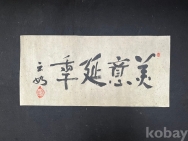 美意延年
kobay